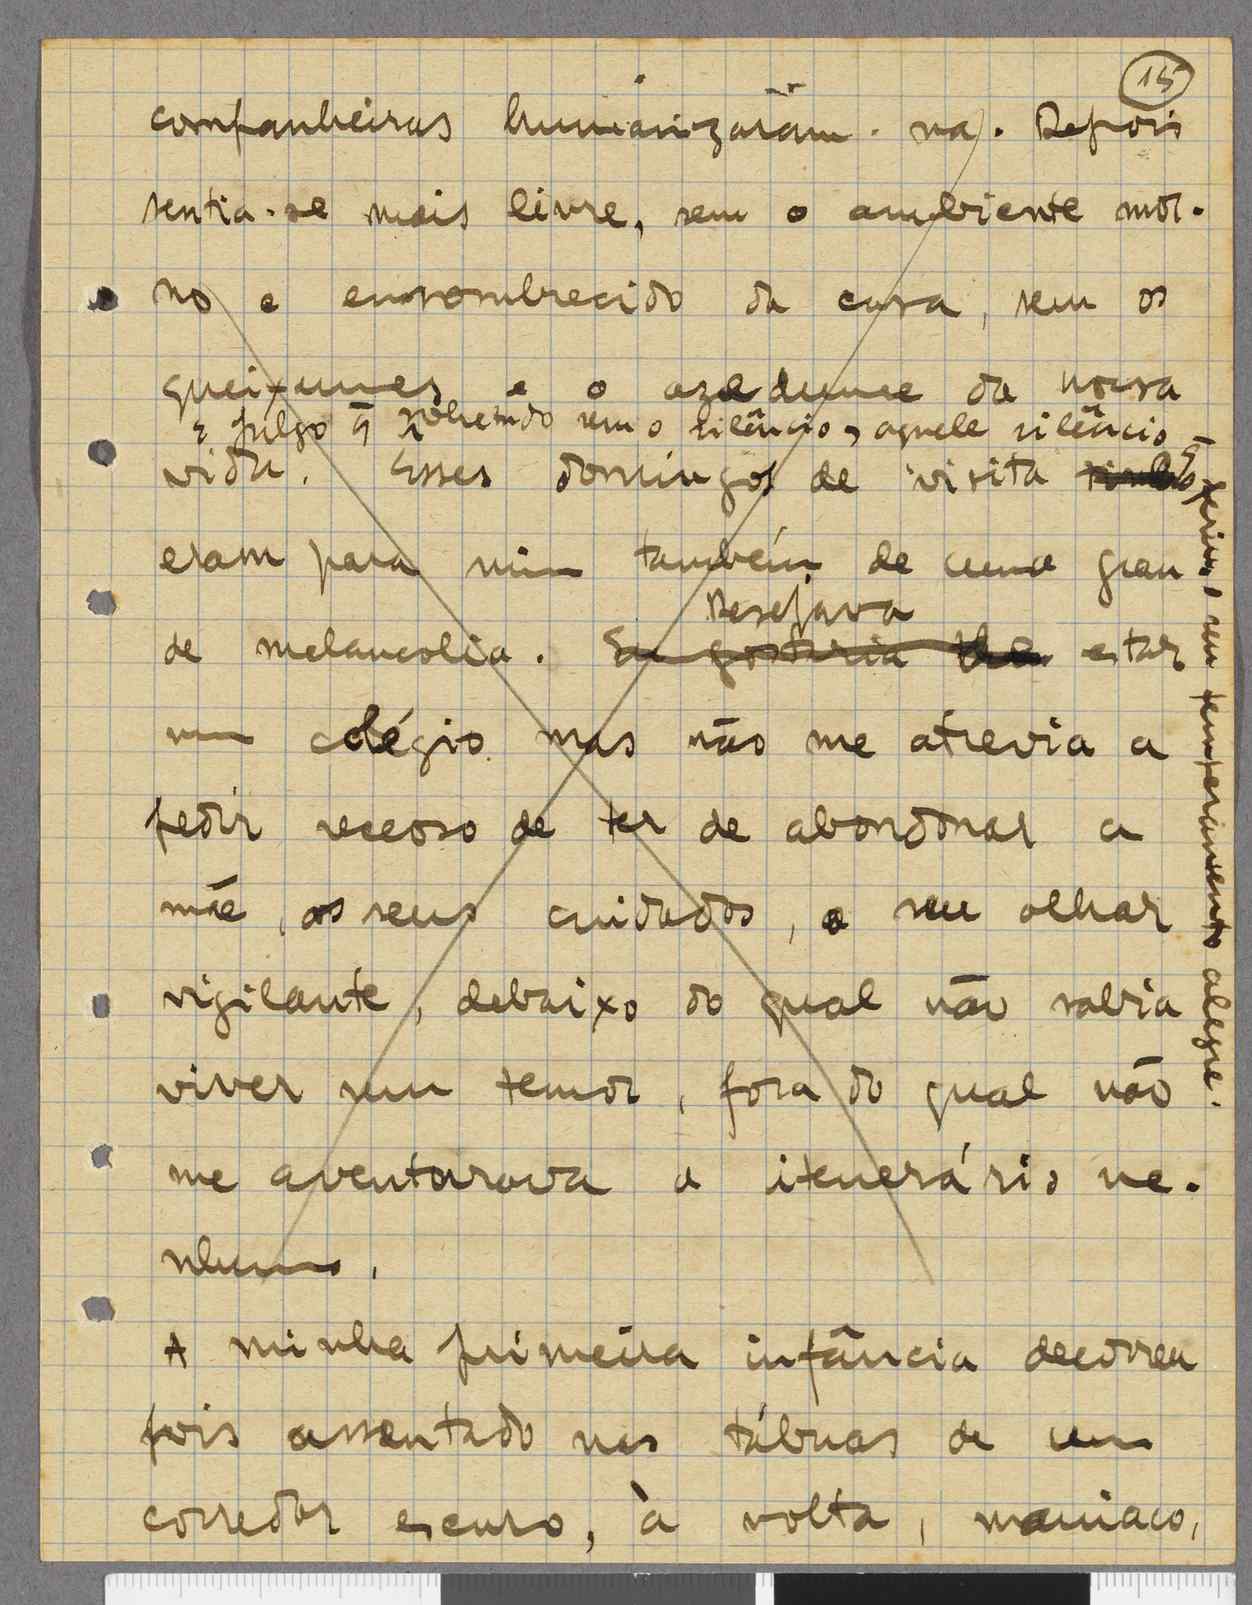 15
companheiras humanizaram-na. Depois
sentia-se mais livre, sem o ambiente mor-
no e ensombrecido da casa, sem os
queixumes e o azedume da nossa
e julgo q̄ sobretudo sem o silêncio, aquele silêncio q̄
vida. Esses domingos de visita
feria o seu temperamento alegre.
eram para mim também de uma gran
de melancolia. Eu gostaria de estar
Desejava
num colégio mas não me atrevia a
pedir receoso de ter de abandonar a
mãe, os seus cuidados, o seu olhar
vigilante, debaixo do qual não sabia
viver sem temor, fora do qual não
me aventurava a itenerário ne-
nhum.
A minha primeira infância decorreu
pois assentado nas tábuas de um
corredor escuro, à volta, maniaco,